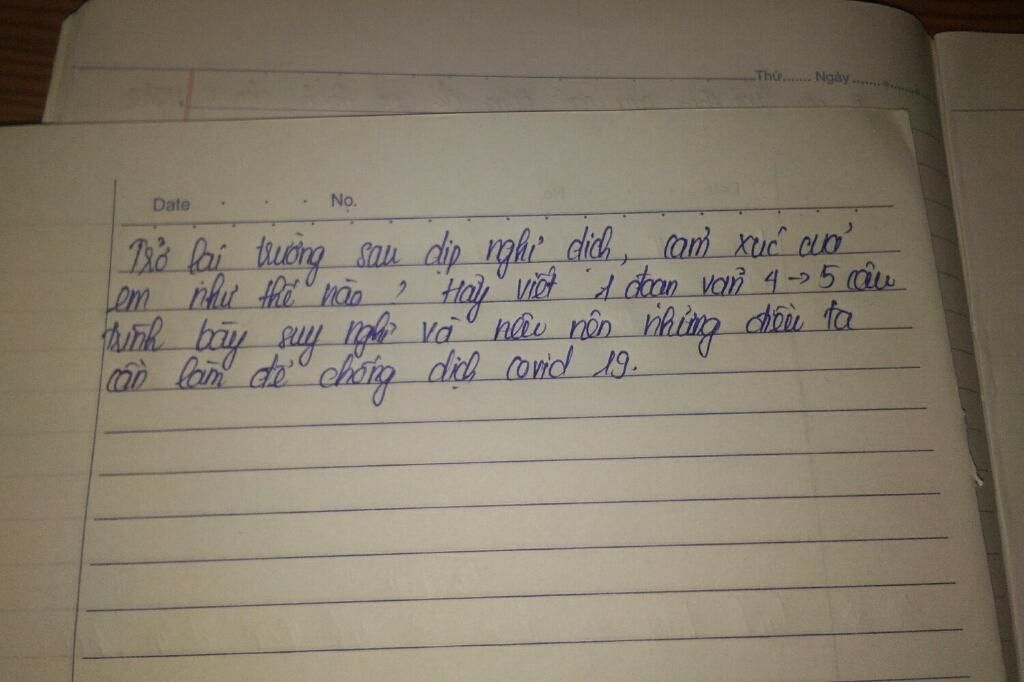 Thứ....... Ngày
Date . . . No.
Trở lại trường sau dịp nghỉ dịch, cảm xúc của
em như thế nào? Hãy viết 1 đoạn văn 4 → 5 câu
trình bày suy nghĩ và nêu nên những điều ta
cần làm để chống dịch covid 19.